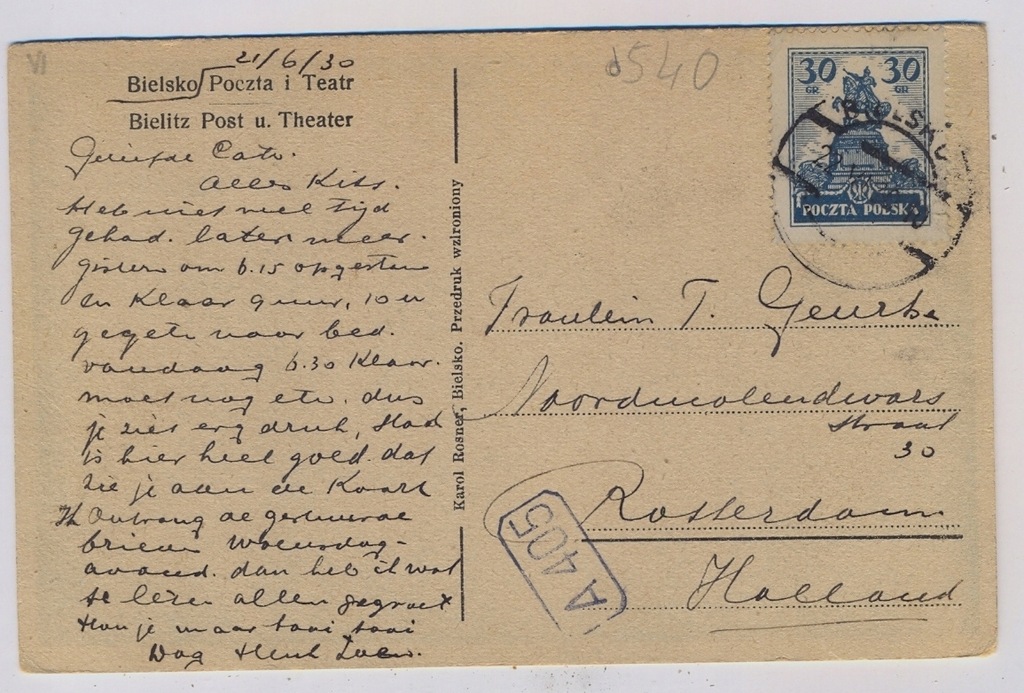 VI
21/6/30
Bielsko Poczta i Teatr
Bielitz Post u. Theater
Cato.
Alles Kits.
Heb niet veel tijd
gehad. later meer.
gisteren om 6.15 opgesten
en klaar 9 uur, 10 u
gegeten naar bed.
vandaag 6.30 klaar.
moet nog eten. dus
je ziet erg druk, Stad
is hier heel goed. dat
zie je aan de Kaart
Ik Ontvang de gestuurde
brieven woensdag-
avond. dan heb ik wat
te lezen allen gegroet
Hou je maar taai taai
Dag Henk
Karol Rosner, Bielsko. Przedruk wzbroniony
540
30 30
GR GR
POCZTA POLSKA
BIELSKO
Fraulein T. Geurts
Noordmolendwars
straat
30
Rotterdam
Holland
A 405